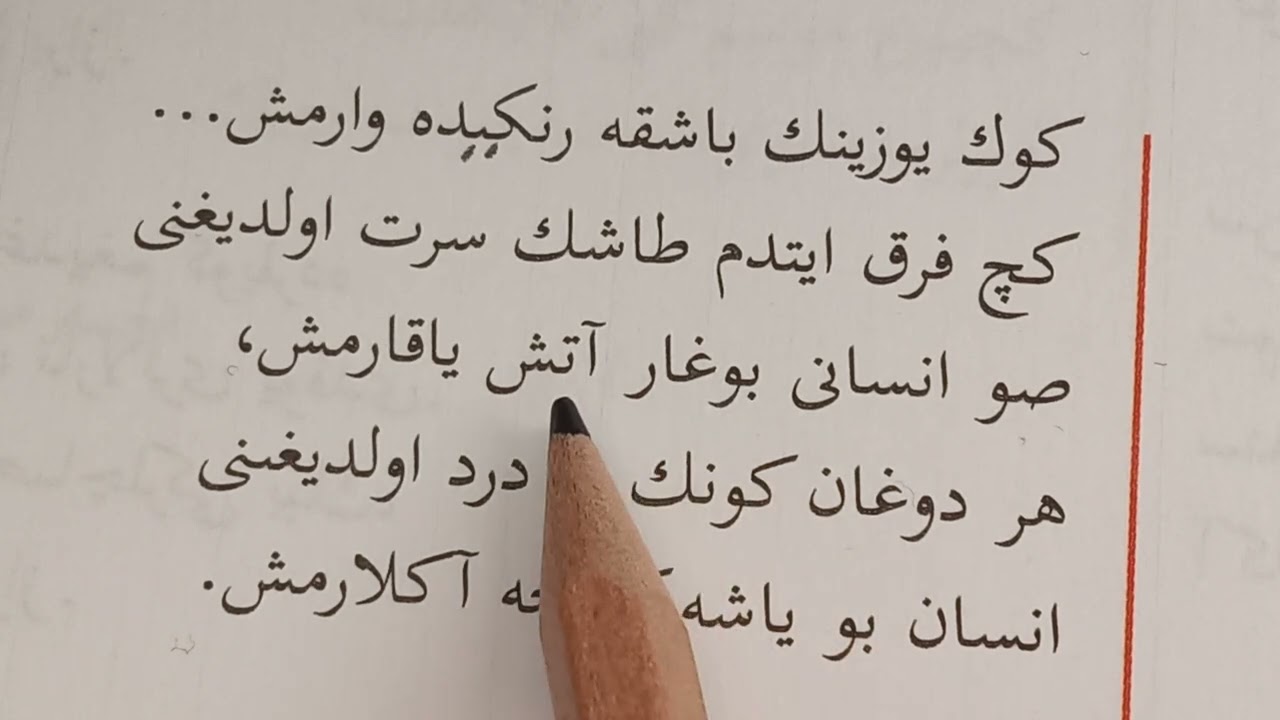 كوك يوزينك باشقه رنكيده وارمش...
كچ فرق ايتدم طاشك سرت اولديغنى
صو انسانى بوغار آتش ياقارمش،
هر دوغان كونك درد اولديغنى
انسان بو ياشه آكلارمش.